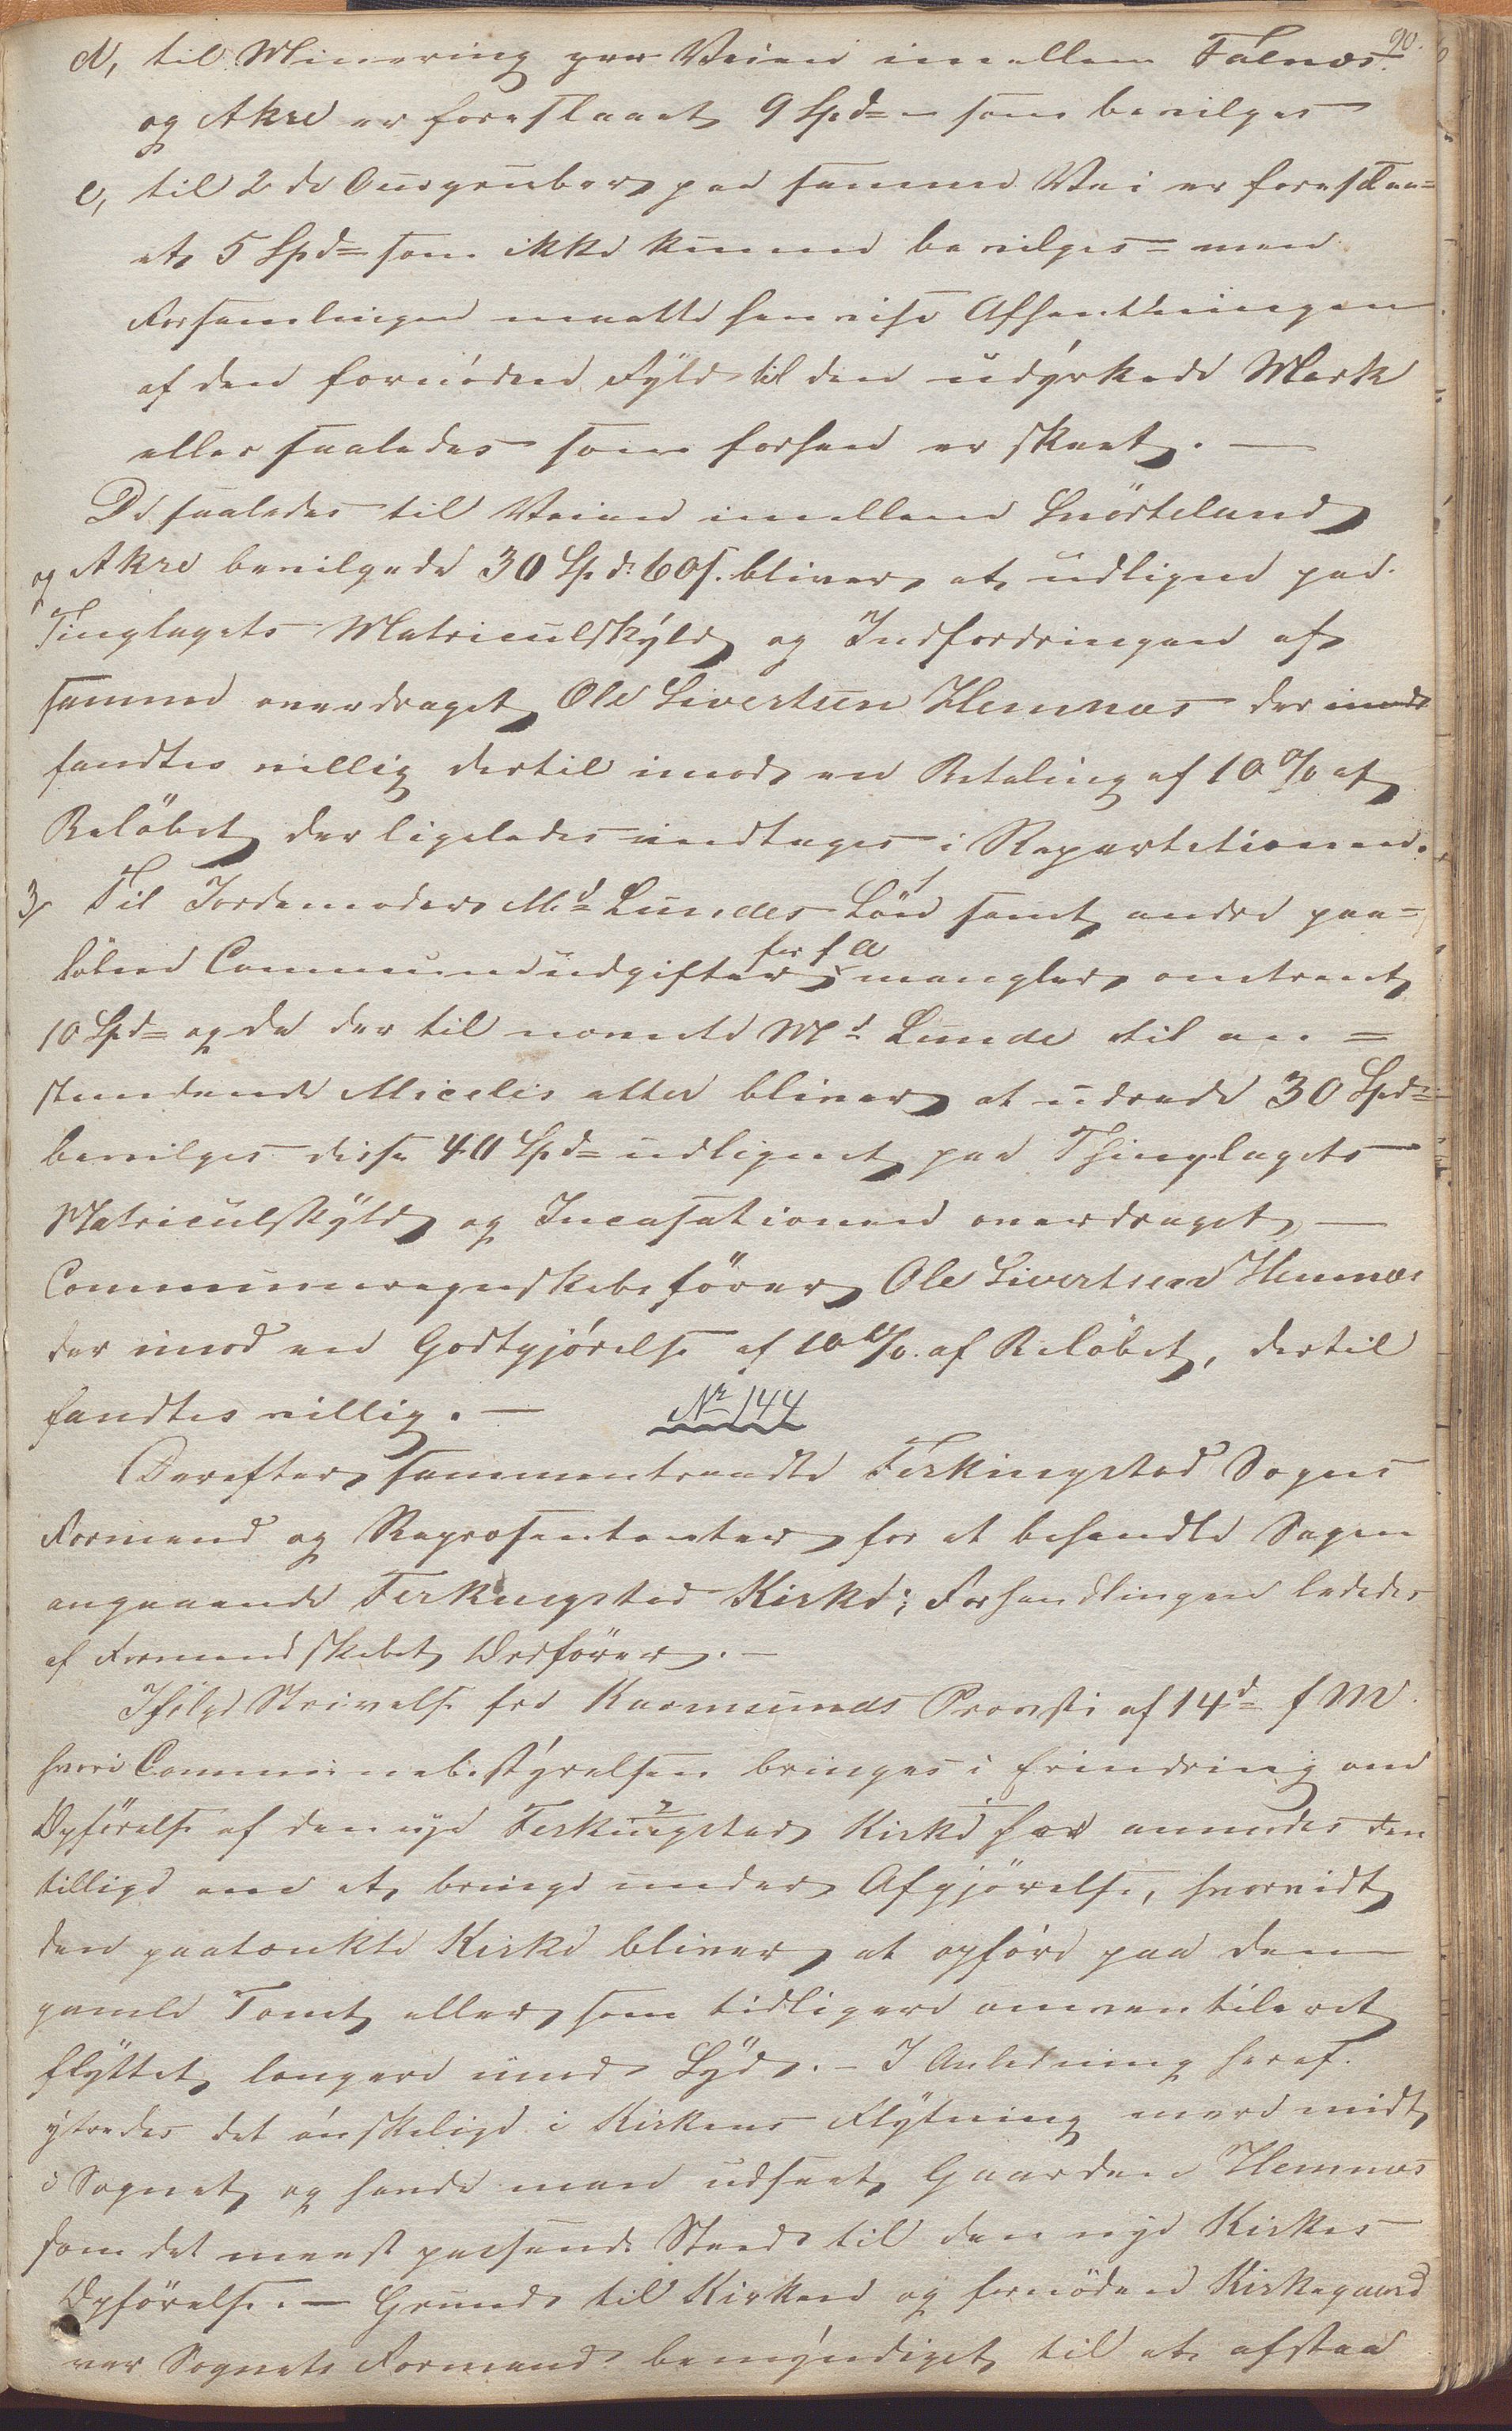 90.
d, til Minering paa Veien imellem Falnæs
og Akre er foreslaaet 9 Spd= som bevilges
e, til 2de Ousgruber paa samme Vei er foreslaa=
et 5 Spd= som ikke kunne bevilges = men
Forsamlingen maatte henvise Afhentningen
af den fornödne Fyld til den udyrkede Mark
eller saaledes som forhen er skeet. —
De saaledes til Veien imellem Snörteland
og Akre bevilgede 30 Spd: 60 s. bliver at udligne paa
Tinglagets Matriculskyld og Indfordringen af
samme overdraget Ole Sivertsen Hemnæs der
fandtes villig dertil imod en Betaling af 10 % af
Belöbet der ligeledes indtages i Repartitionen.
3, Til Jordemoder Md= Lundes Lön samt andre paa=
löbne Communeudgifter for f A mangler omtrent
10 Spd= og da der til nævnte Md Lunde til an=
stundende Micelis atter bliver at udrede 30 Spd=
bevilges disse 40 Spd= udlignet paa Thinglagets
Matriculskyld og Incasationen overdraget —
Communeregnskabsförer Ole Sivertsen Hemnæs
der imod en Godtgjörelse af 10 % af Belöbet, dertil
fandtes villig. — Nr 144
Derefter sammentraadte Ferkingstad Sogns
Formænd og Repræsentanter for at behandle Sagen
angaaende Ferkingstad Kirke; Forhandlingen lededes
af Formandskabets Ordförer. —
Ifölge Skrivelse fra Karmsunds Provsti af 14d= f M.
hvori Communebestyrelsen bringes i Erindring om
Opförelse af den nye Ferkingstad Kirke har anmodes den
tillige om at bringe under Afgjörelse, hvorvidt
den paatænkte Kirke bliver at opföre paa den
gamle Tomt eller som tidligere omventileret
flyttet længere imod Syd. — I Anledning heraf
ytredes det önskelige i Kirkens Flytning mere midt
i Sognet og havde man udseet Gaarden Hemnæs
som det meest passende Sted til den nye Kirkes
Opförelse. — Grund til Kirken og fornöden Kirkegaard
var Sognets Formænd bemyndiget til at afstaa